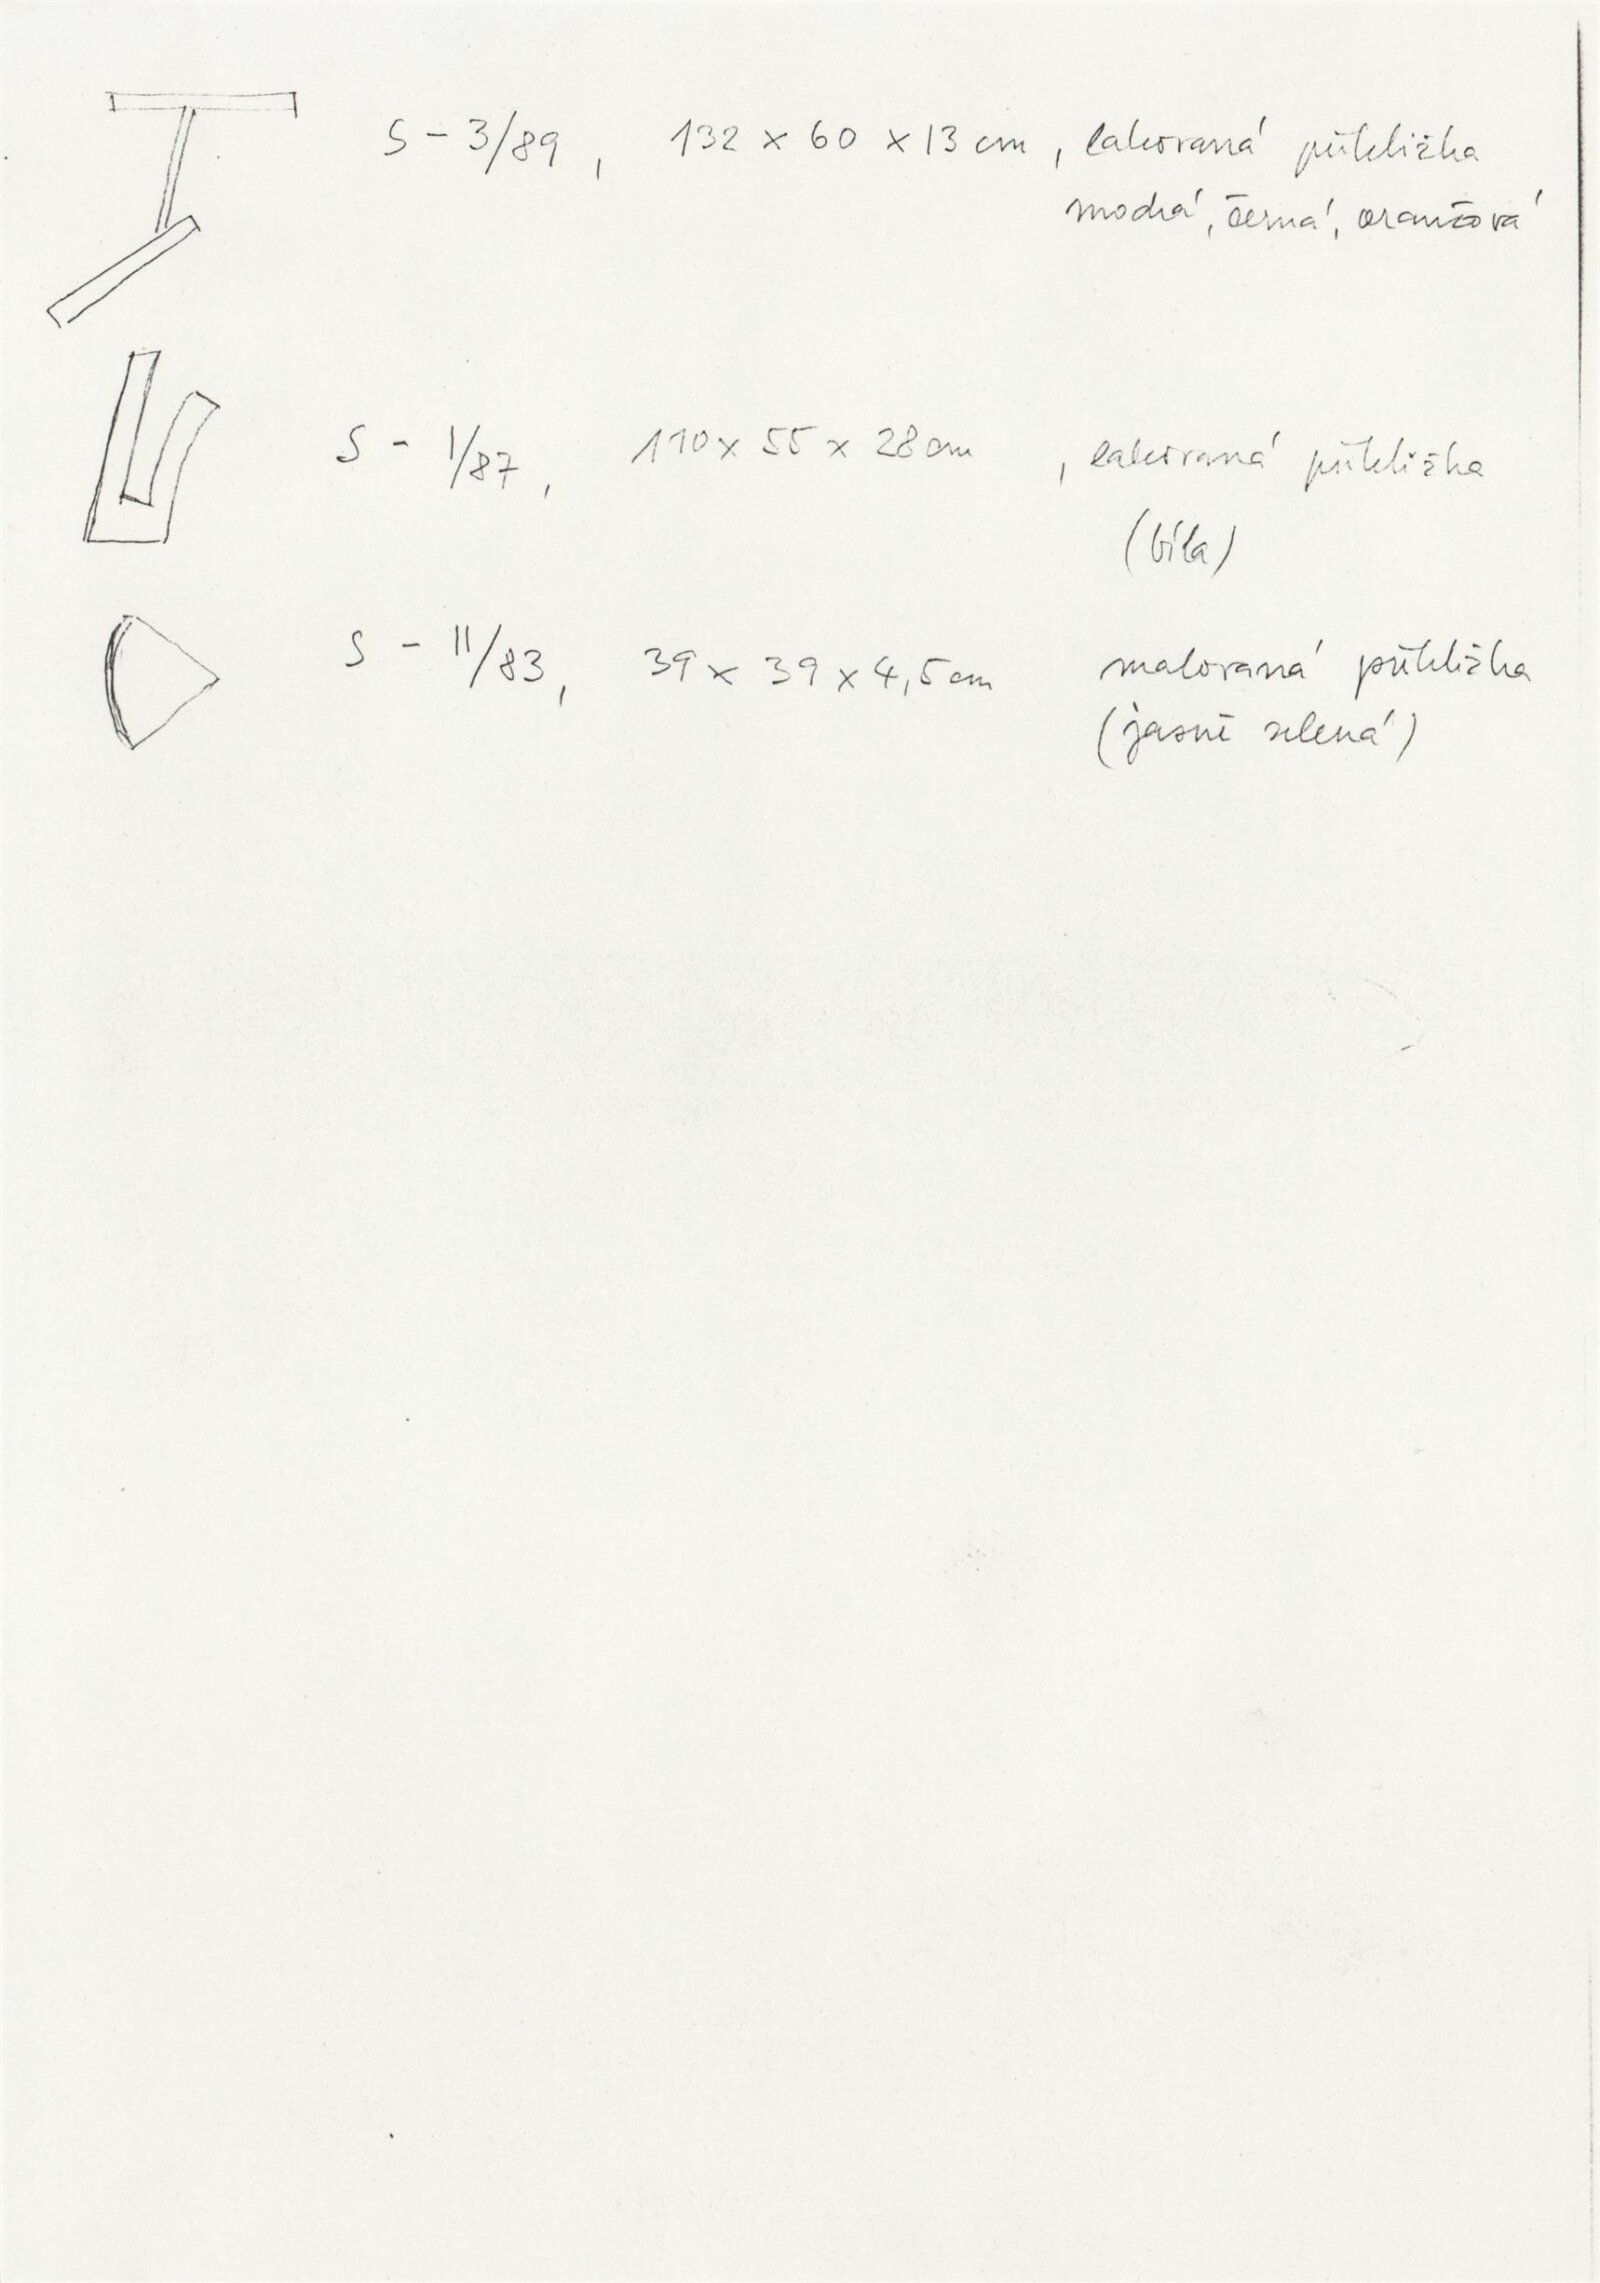 S - 3/89, 132 x 60 x 13 cm, lakovaná překližka
modrá, černá, oranžová
S - I/87, 110 x 55 x 28 cm, lakovaná překližka
(bílá)
S - II/83, 39 x 39 x 4,5 cm malovaná překližka
(jasně zelená)